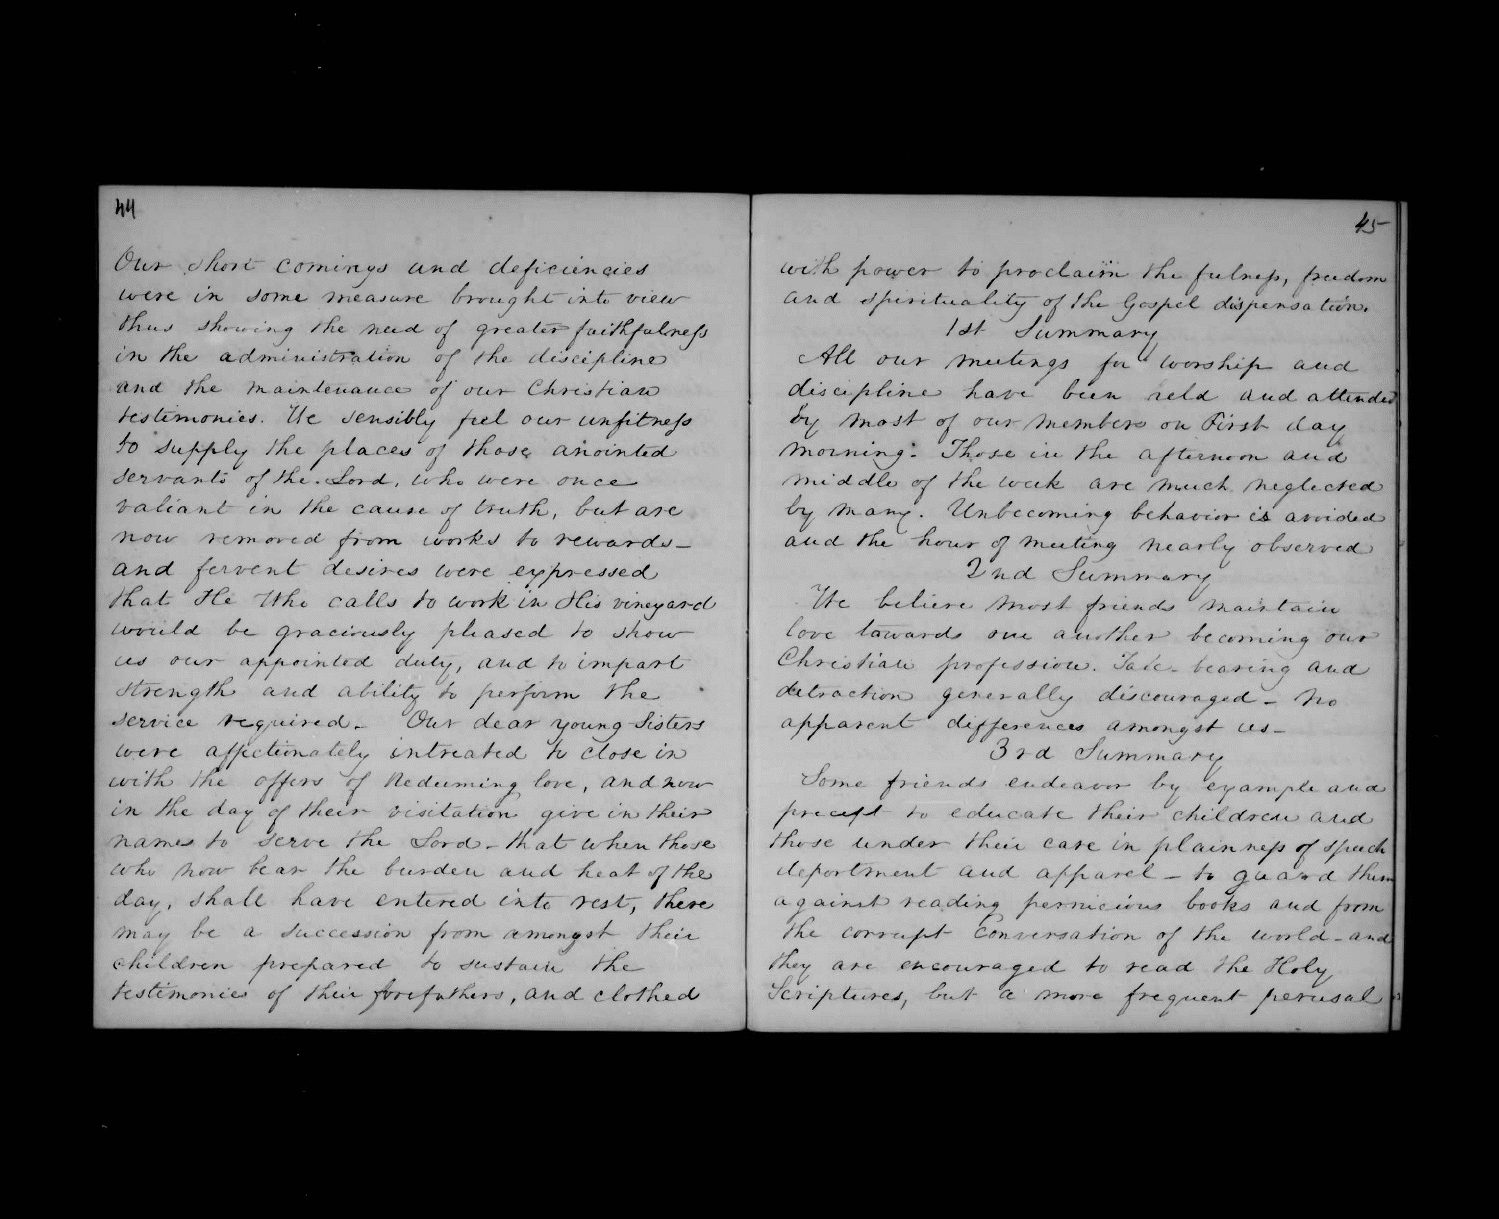 44
Our short comings and deficiencies
were in some measure brought into view
thus showing the need of greater faithfulness
in the administration of the discipline
and the maintenance of our Christian
testimonies. We sensibly feel our unfitness
to supply the places of those anointed
servants of the Lord, who were once
valiant in the cause of truth, but are
now removed from works to rewards_
and fervent desires were expressed
that He Who calls to work in His vineyard
would be graciously pleased to show
us our appointed duty, and to impart
strength and ability to perform the
service required_ Our dear young Sisters
were affectionately intreated to close in
with the offers of Redeeming love, and now
in the day of their visitation give in their
names to serve the Lord_ that when those
who now bear the burden and heat of the
day, shall have entered into rest, there
may be a succession from amongst their
children prepared to sustain the
testimonies of their forefathers, and clothed
45
with power to proclaim the fulness, freedom
and spirituality of the Gospel dispensation.
1st Summary
All our meetings for worship and
discipline have been held and attended
by most of our members on First day
morning. Those in the afternoon and
middle of the week are much neglected
by many. Unbecoming behavior is avoided
and the hour of meeting nearly observed
2nd Summary
We believe most friends maintain
love towards one another becoming our
Christian profession. Tale-bearing and
detraction generally discouraged_ No
apparent differences amongst us_
3rd Summary
Some friends endeavor by example and
precept to educate their children and
those under their care in plainness of speech
deportment and apparel_ to guard them
against reading pernicious books and from
the corrupt conversation of the world_ and
they are encouraged to read the Holy
Scriptures, but a more frequent perusal